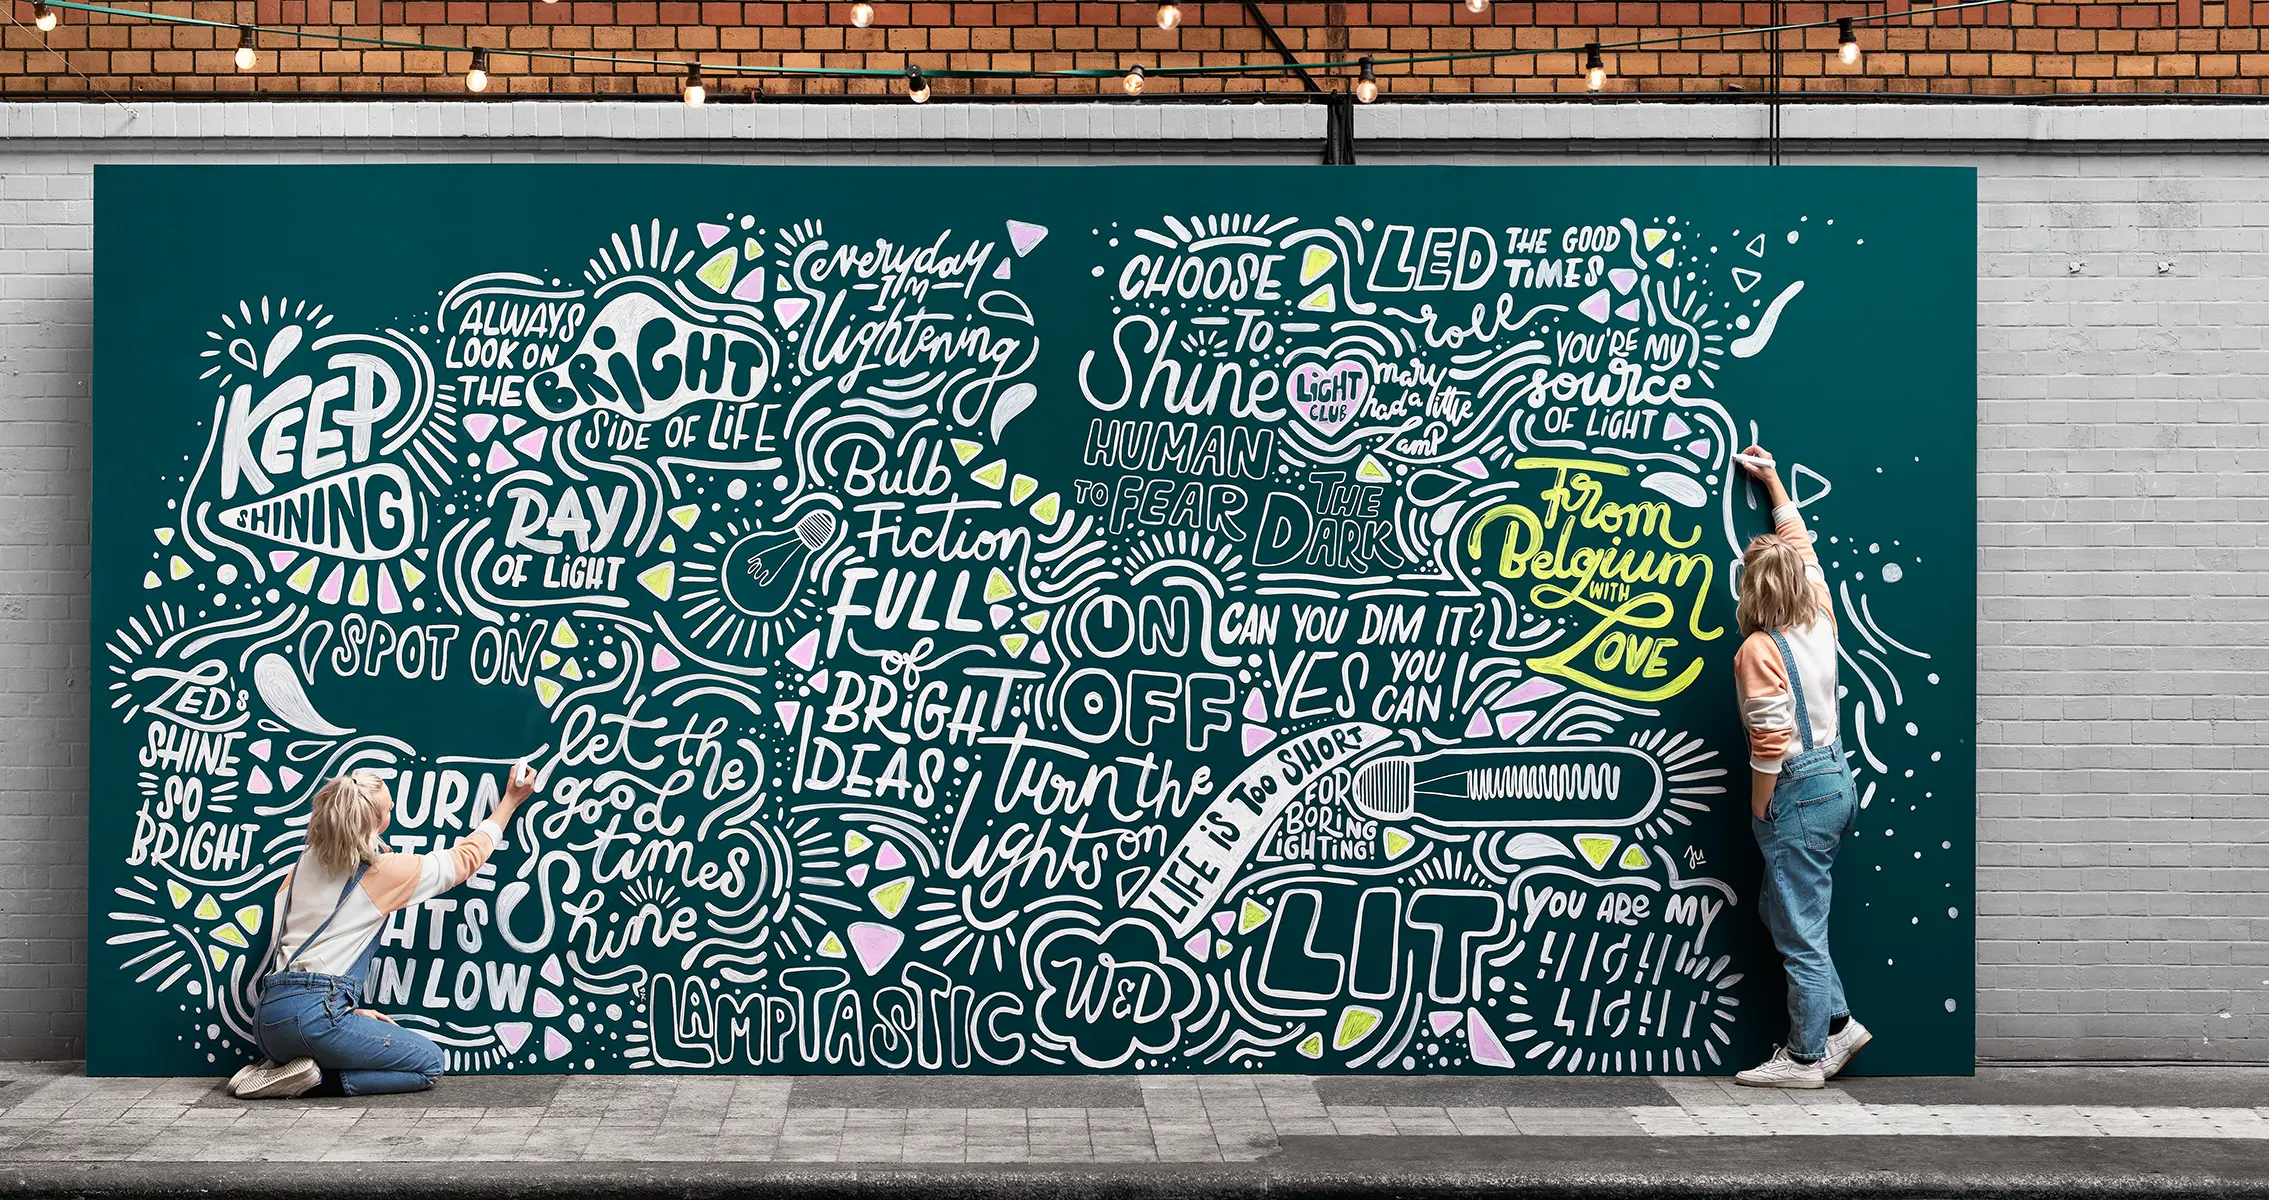 KEEP
SHINING
ALWAYS
LOOK ON
THE BRIGHT
SIDE OF LIFE
everyday
I'M
lightening
RAY
OF LIGHT
SPOT ON
LED's
SHINE
SO
BRIGHT
TURN
THE
HTS
IN LOW
let the
good
times
Shine
Bulb
Fiction
FULL
of
BRIGHT
IDEAS
LAMPTASTIC
CHOOSE
TO
Shine
LED THE GOOD
TIMES
roll
LIGHT
CLUB
mary
had a little
Lamp
YOU'RE MY
source
OF LIGHT
HUMAN
TO FEAR THE
DARK
From
Belgium
WITH
LOVE
ON
OFF
CAN YOU DIM IT?
YES YOU
CAN!
Turn the
lights on
LIFE IS TOO SHORT
FOR
BORING
LIGHTING!
W&D
LIT
Ju
YOU ARE MY